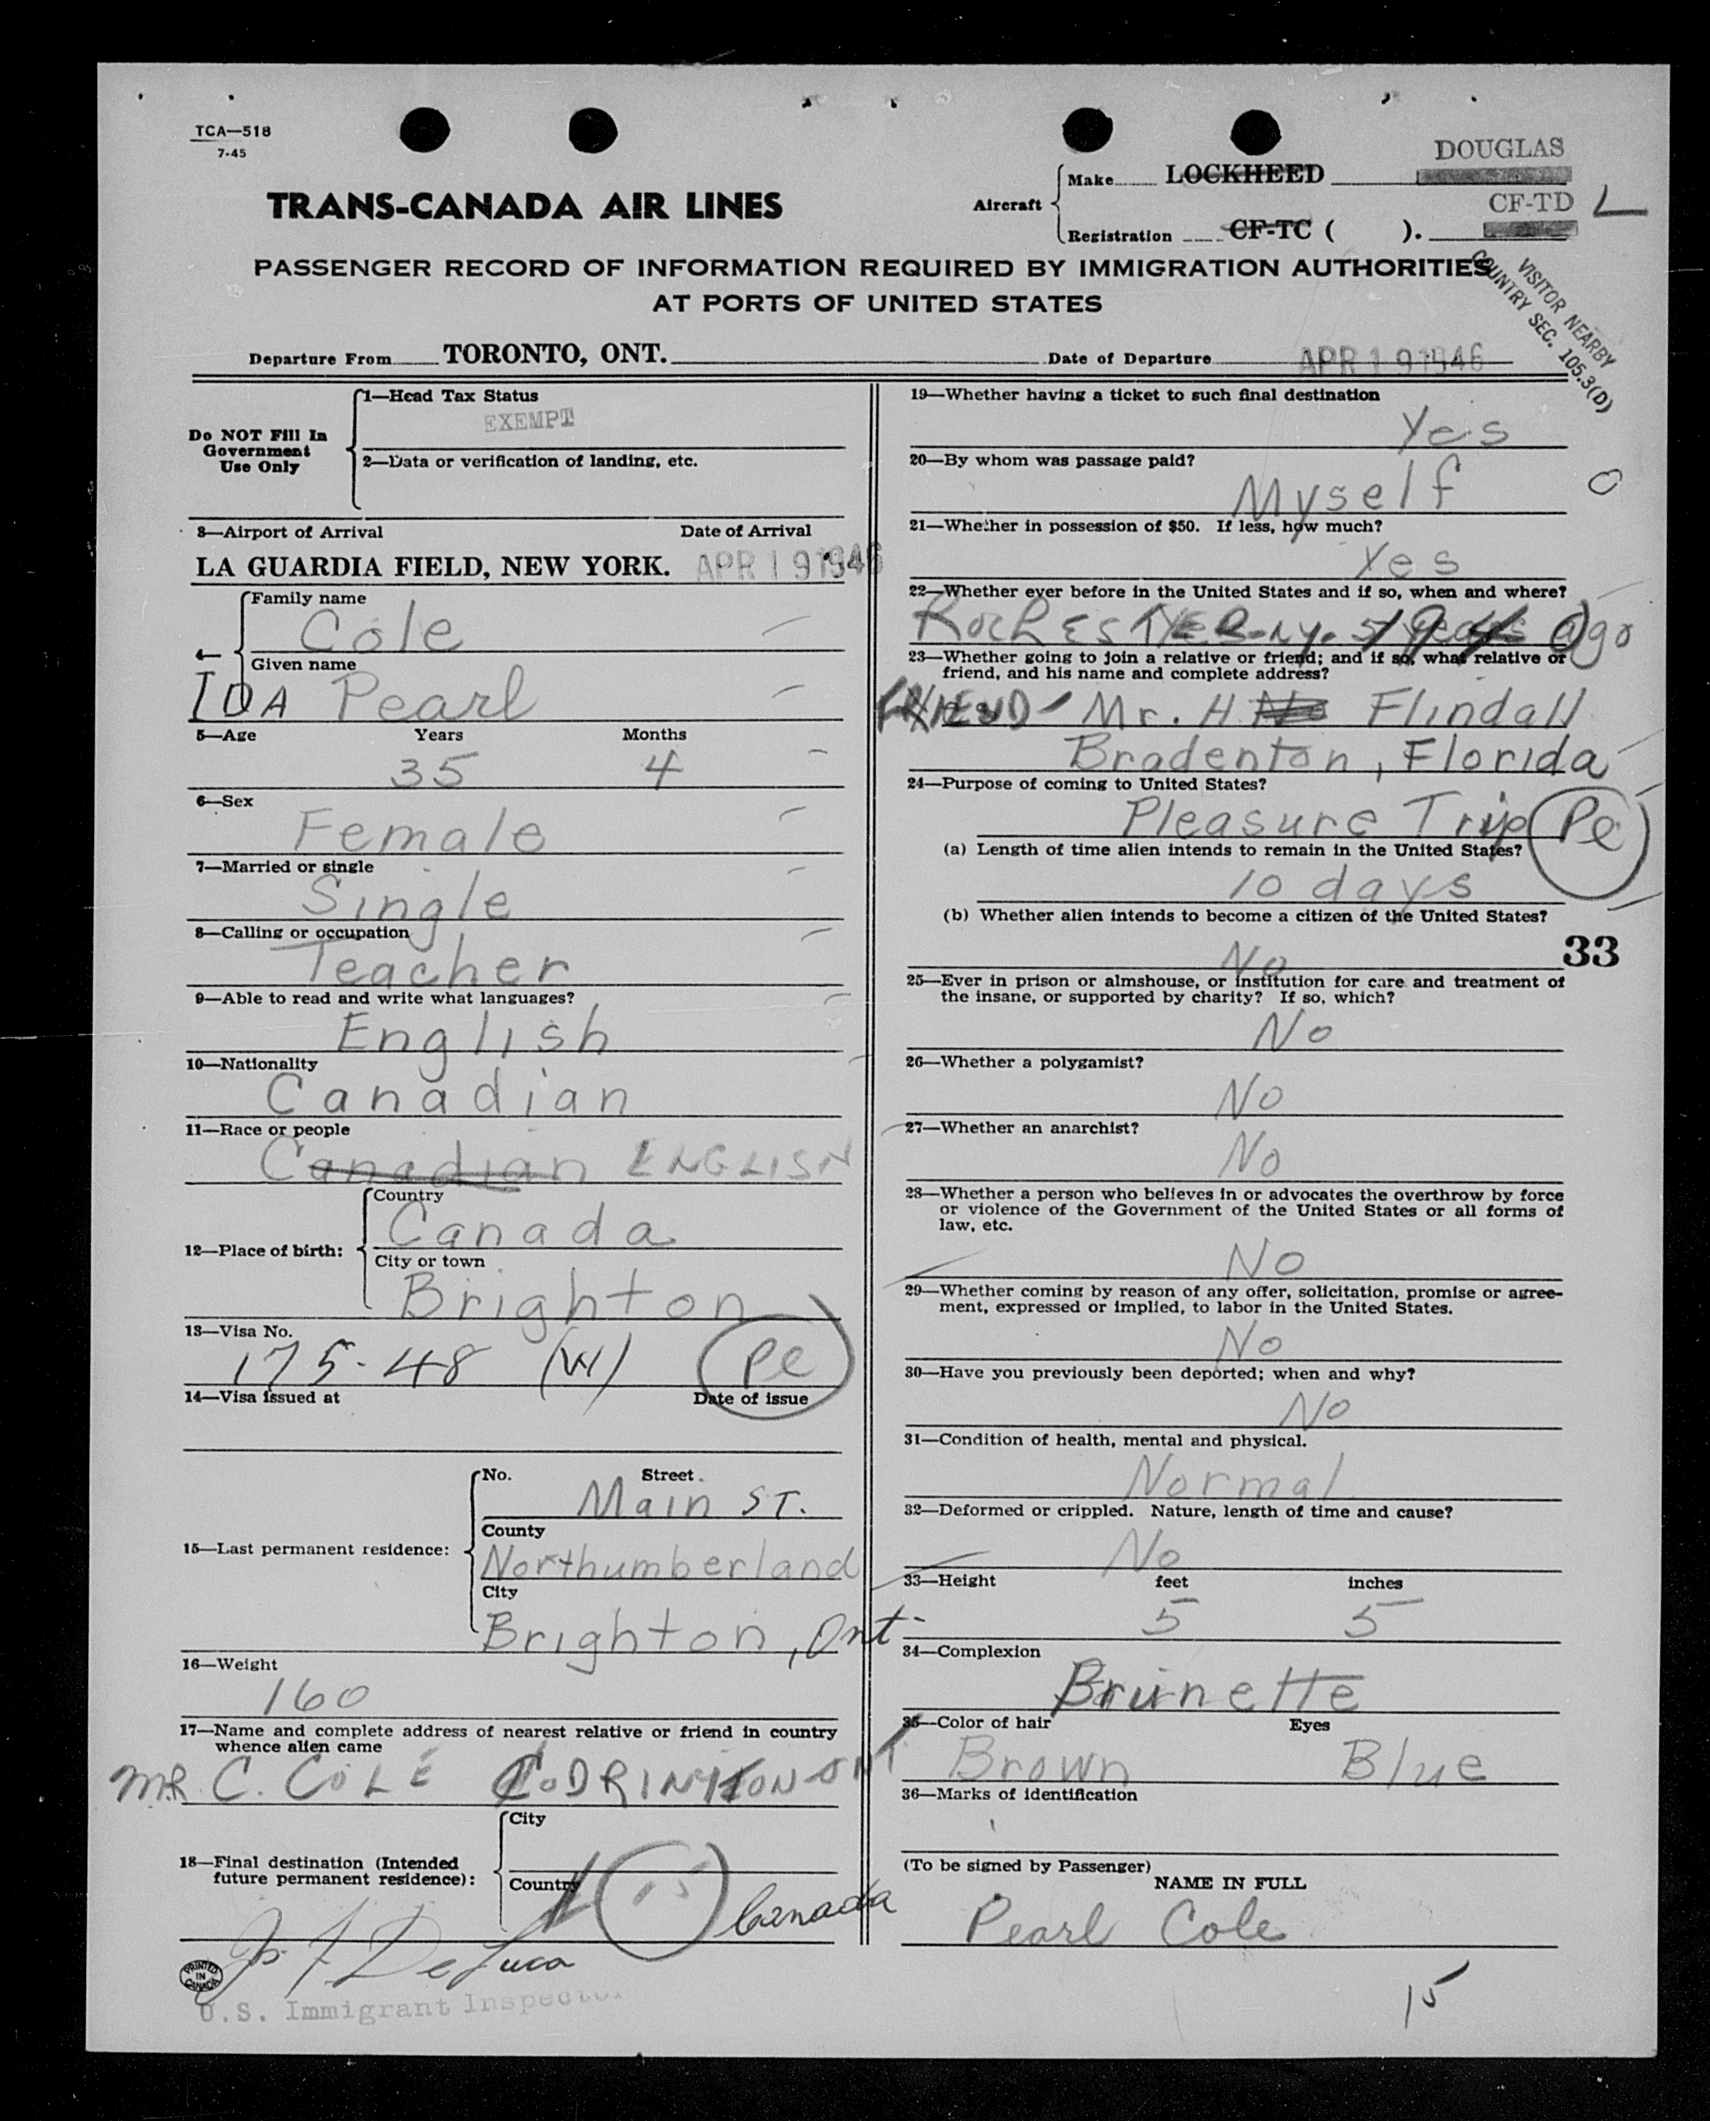 TCA—518
7-45
DOUGLAS
Make LOCKHEED
TRANS-CANADA AIR LINES
Aircraft
CF-TD L
Registration CF-TC ( ).
PASSENGER RECORD OF INFORMATION REQUIRED BY IMMIGRATION AUTHORITIES
AT PORTS OF UNITED STATES
VISITOR NEARBY
COUNTRY SEC. 105.3(D)
Departure From TORONTO, ONT. Date of Departure APR 19 1946
Do NOT Fill In
Government
Use Only
1—Head Tax Status
EXEMPT
2—Data or verification of landing, etc.
3—Airport of Arrival Date of Arrival
LA GUARDIA FIELD, NEW YORK. APR 19 1946
4—
Family name
Cole
Given name
IDA Pearl
5—Age Years Months
35 4
6—Sex
Female
7—Married or single
Single
8—Calling or occupation
Teacher
9—Able to read and write what languages?
English
10—Nationality
Canadian
11—Race or people
Canadian ENGLISH
12—Place of birth:
Country
Canada
City or town
Brighton
13—Visa No.
175-48 (W) Pe
14—Visa issued at Date of issue
15—Last permanent residence:
No. Street
Main ST.
County
Northumberland
City
Brighton, Ont
16—Weight
160
17—Name and complete address of nearest relative or friend in country
whence alien came
MR C. COLE CODRINTON ONT
18—Final destination (Intended
future permanent residence):
City
Country
Canada
J. F. DeLuca
PRINTED
IN
CANADA
U.S. Immigrant Inspector
19—Whether having a ticket to such final destination
Yes
20—By whom was passage paid?
Myself 0
21—Whether in possession of $50. If less, how much?
Yes
22—Whether ever before in the United States and if so, when and where?
Rochester N.Y. ago
23—Whether going to join a relative or friend; and if so, what relative or
friend, and his name and complete address?
FRIEND Mr. H Flindall
Bradenton, Florida
24—Purpose of coming to United States?
Pleasure Trip Pe
(a) Length of time alien intends to remain in the United States?
10 days
(b) Whether alien intends to become a citizen of the United States?
No
33
25—Ever in prison or almshouse, or institution for care and treatment of
the insane, or supported by charity? If so, which?
No
26—Whether a polygamist?
No
27—Whether an anarchist?
No
28—Whether a person who believes in or advocates the overthrow by force
or violence of the Government of the United States or all forms of
law, etc.
No
29—Whether coming by reason of any offer, solicitation, promise or agree-
ment, expressed or implied, to labor in the United States.
No
30—Have you previously been deported; when and why?
No
31—Condition of health, mental and physical.
Normal
32—Deformed or crippled. Nature, length of time and cause?
No
33—Height feet inches
5 5
34—Complexion
Brunette
35—Color of hair Eyes
Brown Blue
36—Marks of identification
(To be signed by Passenger)
NAME IN FULL
Pearl Cole
15